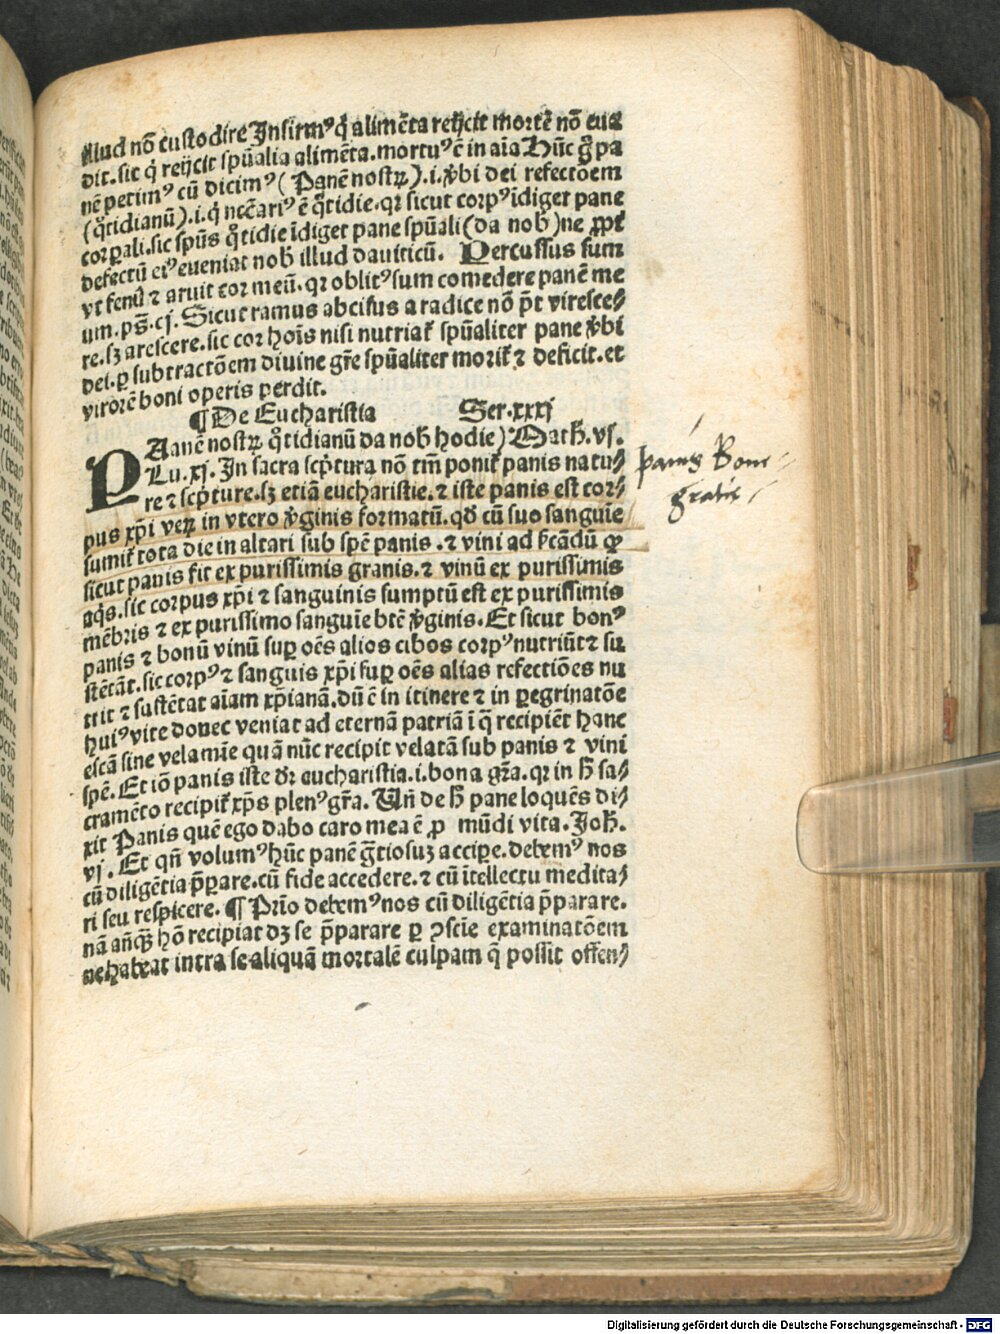 illud nō custodire Infirmꝰ q̇ alimēta reijcit mortē nō eua
dit. sic q̇ reijcit spūalia alimēta. mortuꝰ ē in aīa Hūc g̊ pa
nē petimꝰ cū dicimꝰ (Panē nostꝝ). i. ꝟbi dei refectōem
(q̊tidianū). i. q̇ nccēariꝰ ē q̊tidie. qꝛ sicut corpꝰ īdiget pane
corꝑali. sic spūs q̊tidie īdiget pane spūali (da nob̄) ne ꝓpt̄
defectū eiꝰ eueniat nob̄ illud dauiticū. Percussus sum
vt fenū ⁊ aruit cor meū. qꝛ oblitꝰ sum comedere panē me
um. ps̄. cj. Sicut ramus abcisus a radice nō p̄t viresce⸗
re. sꝫ arescere. sic cor hoīs nisi nutriat̄ spūaliter pane ꝟbi
dei. ꝑ subtractōem diuine gr̄e spūaliter morit̄ ⁊ deficit. et
virorē boni operis perdit.
¶ De Eucharistia Ser. xxxj
PAanē nostꝝ q̊tidianū da nob̄ hodie) Math̄. vj.
Lu. xj. In sacra scp̄tura nō tm̄ ponit̄ panis natu⸗
re ⁊ scp̄ture. sꝫ etiā eucharistie. ⁊ iste panis est cor⸗
pus xp̄i veꝝ in vtero ꝟginis formatū. qd̄ cū suo sanguīe
sumit̄ tota die in altari sub spē panis. ⁊ vini ad
sicut panis fit ex purissimis granis. ⁊ vinū ex purissimis
sic corpus xp̄i ⁊ sanguinis sumptū est ex purissimis
mēbris ⁊ ex purissimo sanguīe btē ꝟginis. Et sicut bonꝰ
panis ⁊ bonū vinū suꝑ oēs alios cibos corpꝰ nutriūt ⁊ su
stētāt. sic corpꝰ ⁊ sanguis xp̄i suꝑ oēs alias refectiōes nu
trit ⁊ sustētat aīam xp̄ianā. dū ē in itinere ⁊ in ꝑegrinatōe
huiꝰ vite donec veniat ad eternā patriā ī q̄ recipiēt hanc
escā sine velamīe quā nūc recipit velatā sub panis ⁊ vini
spē. Et iō panis iste dr̄ eucharistia. i. bona gr̄a. qꝛ in h̄ sa⸗
cramēto recipit̄ xp̄s plenꝰ gr̄a. Vn̄ de h̄ pane loquēs di⸗
xit Panis quē ego dabo caro mea ē ꝓ mūdi vita. Joh̄.
vj. Et qn̄ volumꝰ hūc panē gr̄tiosuꝫ accipe. debemꝰ nos
cū diligētia p̄ꝑare. cū fide accedere. ⁊ cū ītellectu medita⸗
ri seu respicere. ¶ Prīo debemꝰ nos cū diligētia p̄parare.
nā añq̄ꝫ hō recipiat dꝫ se p̄parare ꝑ ꝯsciē examinatōem
ne habeat intra se aliquā mortalē culpam q̄ possit offen⸗
panis Bone
gratie
Digitalisierung gefördert durch die Deutsche Forschungsgemeinschaft - DFG